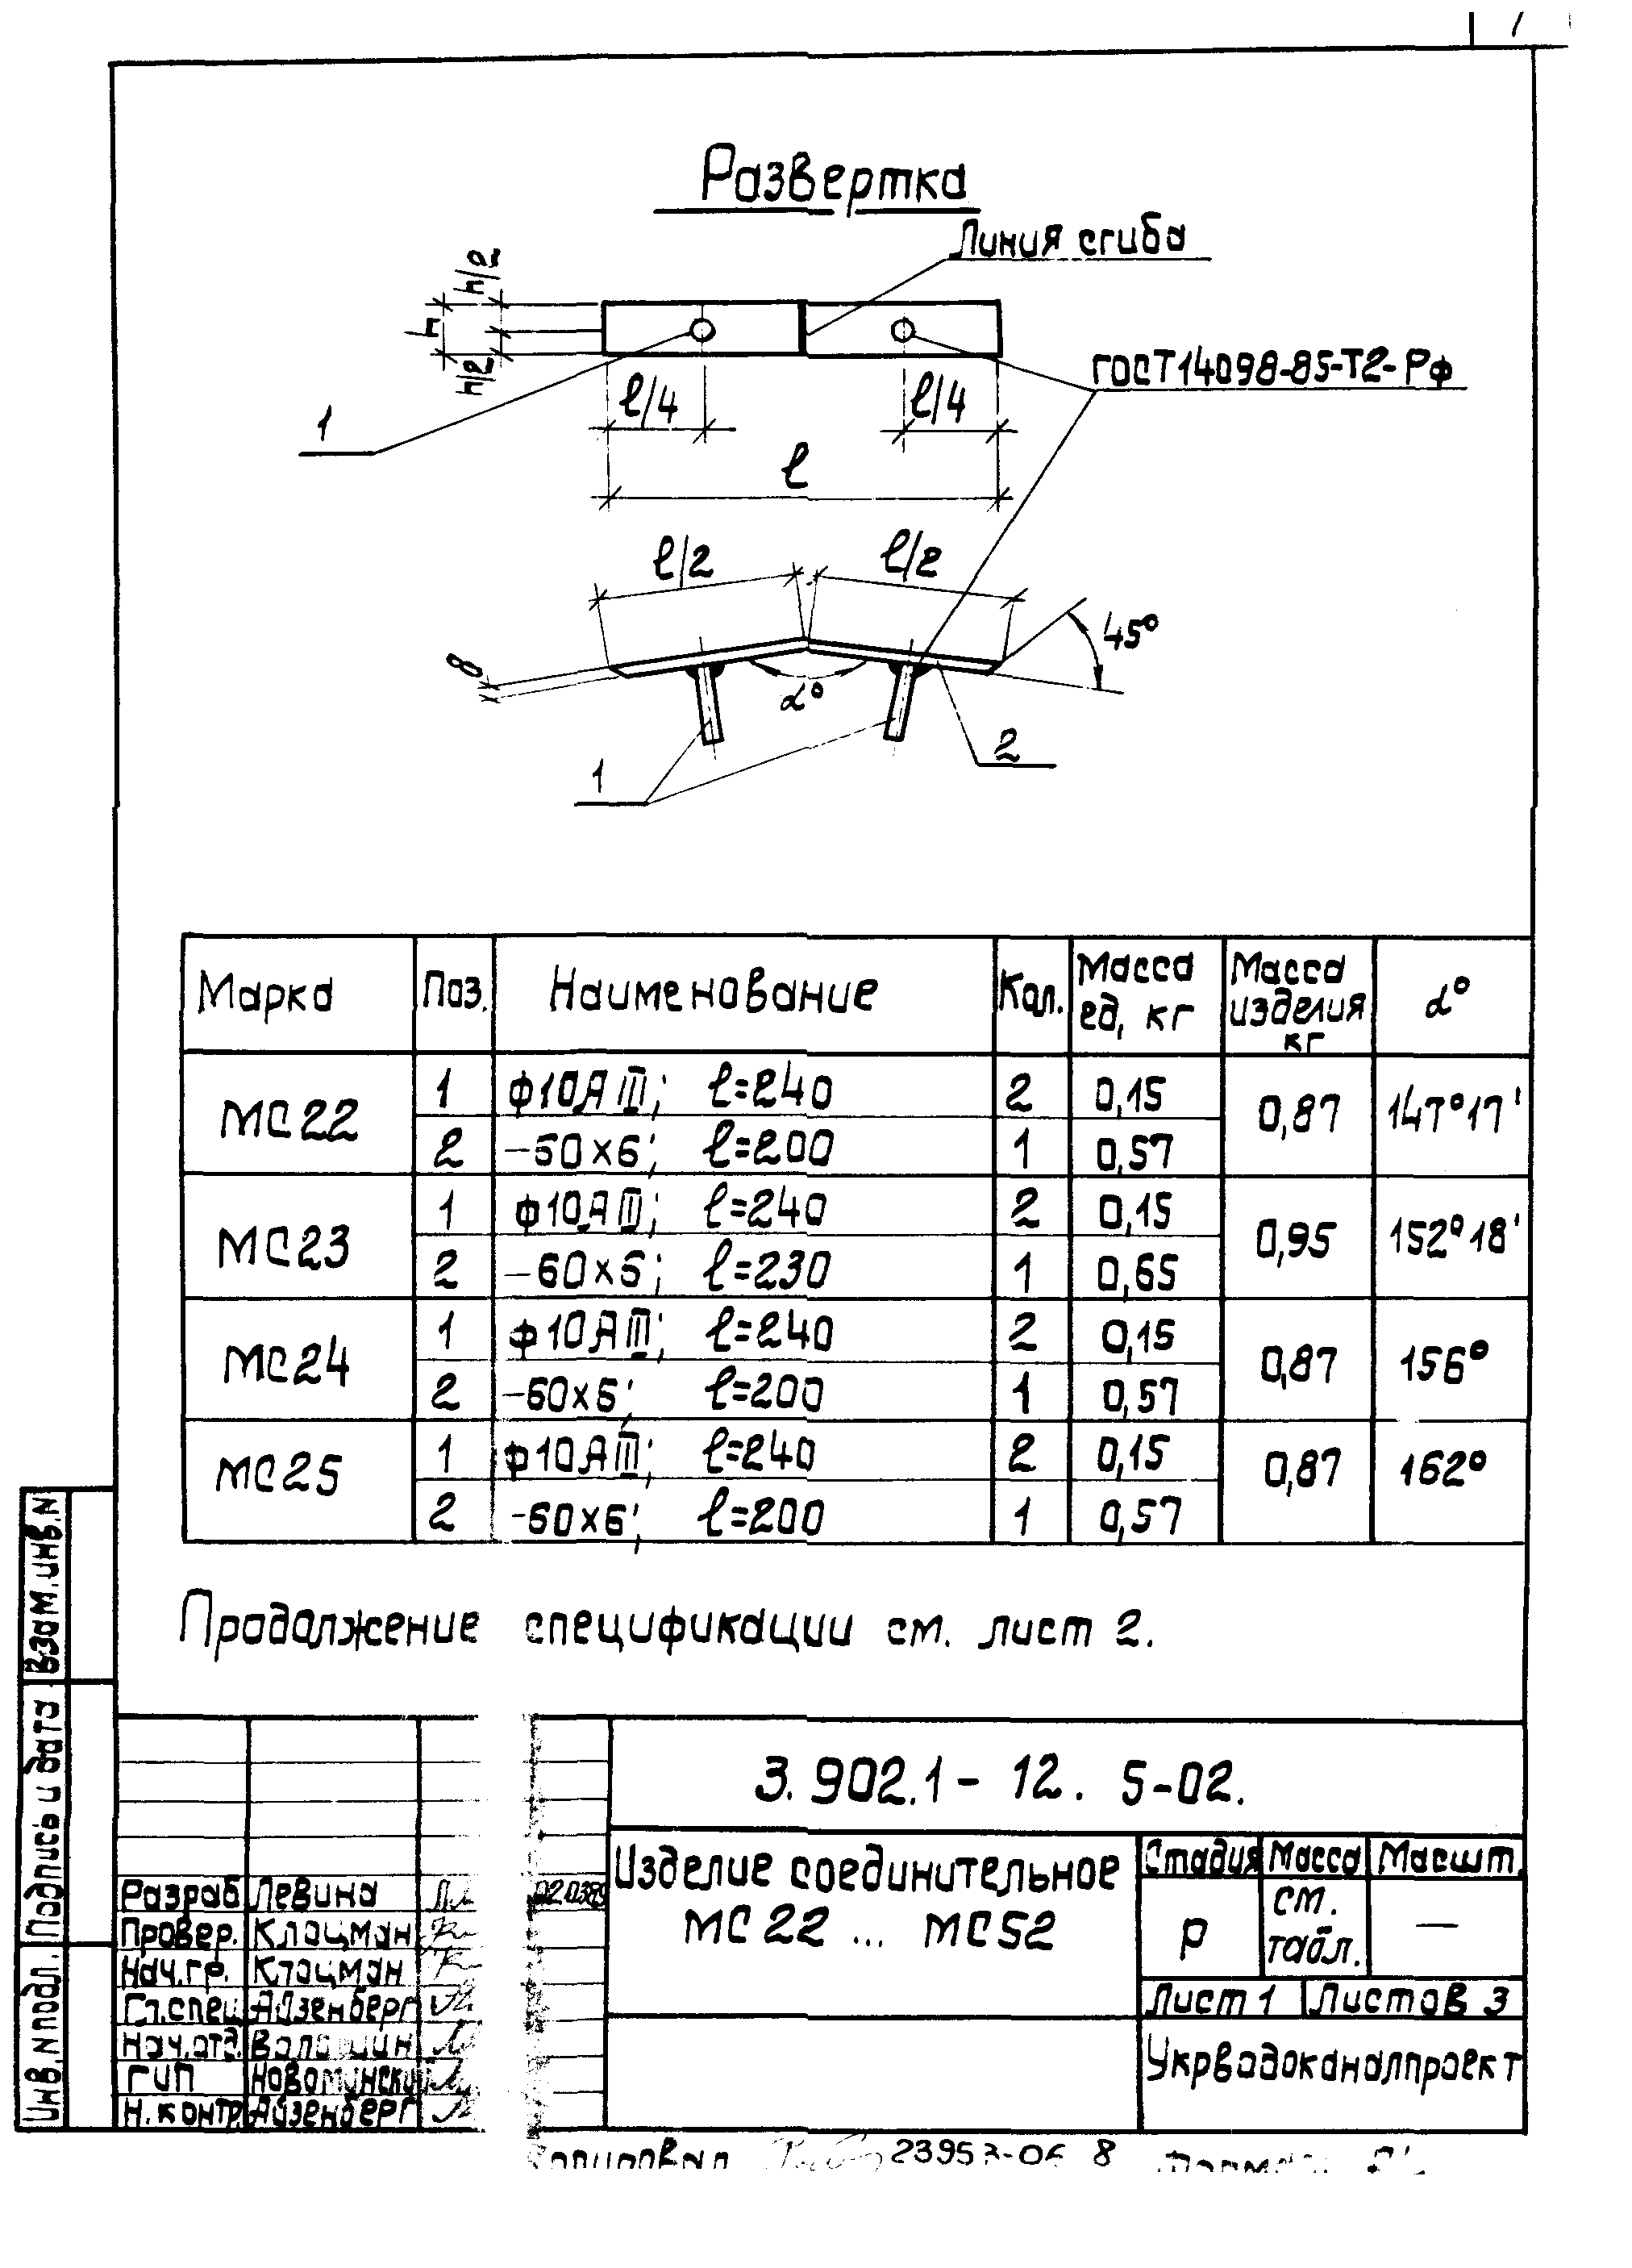 Развертка
Линия сгиба
h/2
h
h/2
ГОСТ14098-85-Т2-Рф
1
ℓ/4
ℓ/4
ℓ
ℓ/2
ℓ/2
45°
8
α°
1
2
Марка Поз. Наименование Кол. Масса ед, кг Масса изделия кг α°
МС22 1 ф10АIII; ℓ=240 2 0,15 0,87 147°17'
2 -60×6; ℓ=200 1 0,57
МС23 1 ф10АIII; ℓ=240 2 0,15 0,95 152°18'
2 -60×6; ℓ=230 1 0,65
МС24 1 ф10АIII; ℓ=240 2 0,15 0,87 156°
2 -60×6; ℓ=200 1 0,57
МС25 1 ф10АIII; ℓ=240 2 0,15 0,87 162°
2 -60×6; ℓ=200 1 0,57
Продолжение спецификации см. лист 2.
Взам.инв.N
Подпись и дата
Инв.Nподл.
3.902.1- 12. 5-02.
Изделие соединительное
МС22 ... МС52
Стадия Масса Масшт.
Р см. табл. —
Лист 1 Листов 3
Укрводоканалпроект
Разраб Левина
Провер. Клацман
Нач.гр. Клацман
Гл.спец Айзенберг
Нач.отд.
ГИП Новоминский
Н.контр Айзенберг
Копировал 8